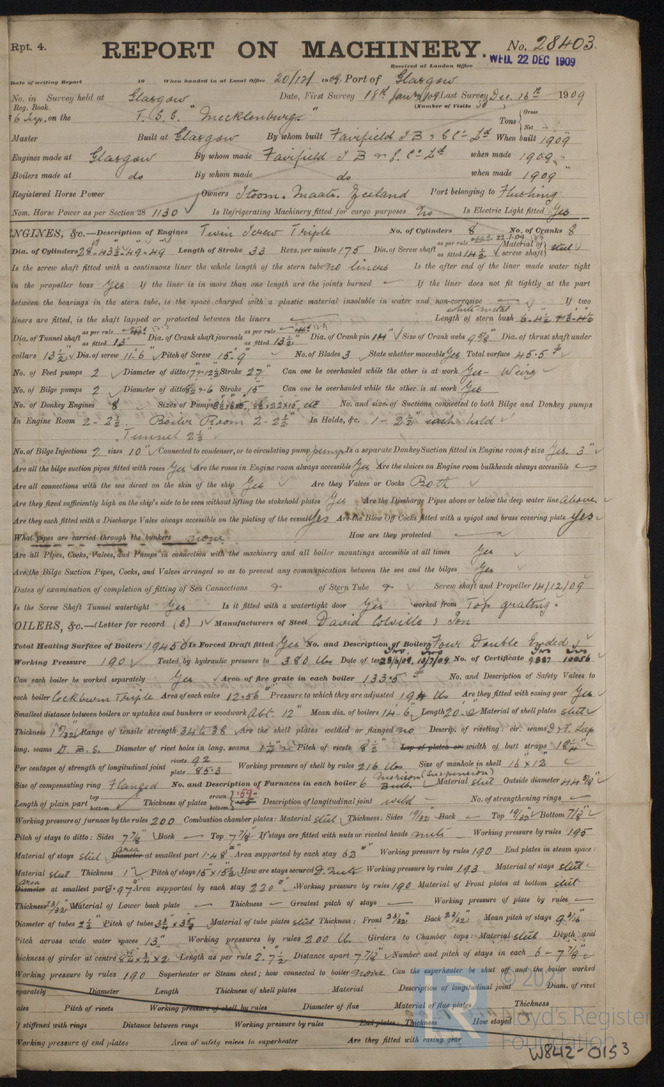 Rpt. 4.
REPORT ON MACHINERY. No. 28403.
Received at London Office WED. 22 DEC 1909
Date of writing Report 19 When handed in at Local Office 20/12/1909 Port of Glasgow
No. in Survey held at Glasgow Date, First Survey 18th Last Survey Dec. 16th 1909
Reg. Book. (Number of Visits
on the T.S.S. "Mecklenburg" Tons Gross Net
Master Built at Glasgow By whom built Fairfield S B & E Co Ld When built 1909
Engines made at Glasgow By whom made Fairfield S B & E Co Ld when made 1909
Boilers made at do By whom made do when made 1909
Registered Horse Power Owners Stoom. Maats. Zeeland Port belonging to Flushing
Nom. Horse Power as per Section 28 1130 Is Refrigerating Machinery fitted for cargo purposes No Is Electric Light fitted Yes
ENGINES, &c.—Description of Engines Twin Screw Triple No. of Cylinders 8 No. of Cranks 8
Dia. of Cylinders 28"-43½"-49-49 Length of Stroke 33 Revs. per minute 175 Dia. of Screw shaft as per rule as fitted 14½" Material of screw shaft steel
Is the screw shaft fitted with a continuous liner the whole length of the stern tube no liners Is the after end of the liner made water tight
in the propeller boss Yes If the liner is in more than one length are the joints burned If the liner does not fit tightly at the part
between the bearings in the stern tube, is the space charged with a plastic material insoluble in water and non-corrosive If two
liners are fitted, is the shaft lapped or protected between the liners white metal Length of stern bush
Dia. of Tunnel shaft as per rule as fitted 13" Dia. of Crank shaft journals as per rule as fitted 13½" Dia. of Crank pin 14" Size of Crank webs Dia. of thrust shaft under
collars 13½" Dia. of screw 11'.6 Pitch of Screw 15'.9" No. of Blades 3 State whether moveable Yes Total surface 45.5
No. of Feed pumps 2 Diameter of ditto Stroke 27" Can one be overhauled while the other is at work Yes Weirs
No. of Bilge pumps 2 Diameter of ditto Stroke 15" Can one be overhauled while the other is at work Yes
No. of Donkey Engines 8 Sizes of Pumps No. and size of Suctions connected to both Bilge and Donkey pumps
In Engine Room 2-2½" Boiler Room 2-2½" In Holds, &c. 1-2½" each hold
Tunnel 2½"
No. of Bilge Injections 2 sizes 10" Connected to condenser, or to circulating pump pump Is a separate Donkey Suction fitted in Engine room & size Yes. 3"
Are all the bilge suction pipes fitted with roses Yes Are the roses in Engine room always accessible Yes Are the sluices on Engine room bulkheads always accessible
Are all connections with the sea direct on the skin of the ship Yes Are they Valves or Cocks Both
Are they fixed sufficiently high on the ship's side to be seen without lifting the stokehold plates Yes Are the Discharge Pipes above or below the deep water line above
Are they each fitted with a Discharge Valve always accessible on the plating of the vessel Yes Are the Blow Off Cocks fitted with a spigot and brass covering plate yes
What pipes are carried through the bunkers none How are they protected
Are all Pipes, Cocks, Valves, and Pumps in connection with the machinery and all boiler mountings accessible at all times Yes
Are the Bilge Suction Pipes, Cocks, and Valves arranged so as to prevent any communication between the sea and the bilges Yes
Dates of examination of completion of fitting of Sea Connections of Stern Tube Screw shaft and Propeller 14/12/09
Is the Screw Shaft Tunnel watertight Yes Is it fitted with a watertight door Yes worked from Top grating.
BOILERS, &c.—(Letter for record (S)) Manufacturers of Steel David Colville & Son
Total Heating Surface of Boilers 19450 Is Forced Draft fitted Yes No. and Description of Boilers Four Double Ended
Working Pressure 190 Tested by hydraulic pressure to 380 lbs Date of test No. of Certificate 9887 10056
Can each boiler be worked separately Yes Area of fire grate in each boiler 133.5 No. and Description of Safety Valves to
each boiler Cockburn Triple Area of each valve 12.56 Pressure to which they are adjusted 194 lbs Are they fitted with easing gear Yes
Smallest distance between boilers or uptakes and bunkers or woodwork Abt. 12" Mean dia. of boilers 14'.6 Length 20'.0 Material of shell plates steel
Thickness Range of tensile strength 34 to 38 Are the shell plates welded or flanged no Descrip. of riveting: cir. seams D.R. Lap
long. seams D.B.S. Diameter of rivet holes in long. seams Pitch of rivets 8½" Lap of plates or width of butt straps 18¼"
Per centages of strength of longitudinal joint rivets 92 plate 85.3 Working pressure of shell by rules 216 lbs Size of manhole in shell 16" x 12"
Size of compensating ring Flanged No. and Description of Furnaces in each boiler 6 Morison (suspension) Material steel Outside diameter
Length of plain part top bottom Thickness of plates crown bottom .59 Description of longitudinal joint weld No. of strengthening rings
Working pressure of furnace by the rules 200 Combustion chamber plates: Material steel Thickness: Sides Back Top Bottom
Pitch of stays to ditto: Sides 7⅞" Back Top 7⅞" If stays are fitted with nuts or riveted heads nuts Working pressure by rules 195
Material of stays steel Area Diameter at smallest part 1.48" Area supported by each stay 62" Working pressure by rules 190 End plates in steam space:
Material steel Thickness 1" Pitch of stays How are stays secured D. nuts Working pressure by rules 193 Material of stays steel
Area Diameter at smallest part 3.97 Area supported by each stay 220" Working pressure by rules 190 Material of Front plates at bottom steel
Thickness Material of Lower back plate Thickness Greatest pitch of stays Working pressure of plate by rules
Diameter of tubes 2½" Pitch of tubes Material of tube plates steel Thickness: Front Back Mean pitch of stays
Pitch across wide water spaces 13" Working pressures by rules 200 lb Girders to Chamber tops: Material steel Depth and
thickness of girder at centre Length as per rule 2'.7½ Distance apart 7⅞" Number and pitch of stays in each
Working pressure by rules 190 Superheater or Steam chest; how connected to boiler none Can the superheater be shut off and the boiler worked
separately Diameter Length Thickness of shell plates Material Description of longitudinal joint Diam. of rivet
holes Pitch of rivets Working pressure of shell by rules Diameter of flue Material of flue plates Thickness
If stiffened with rings Distance between rings Working pressure by rules End plates: Thickness How stayed
Working pressure of end plates Area of safety valves to superheater Are they fitted with easing gear
Lloyd's Register
Foundation
W842-0153